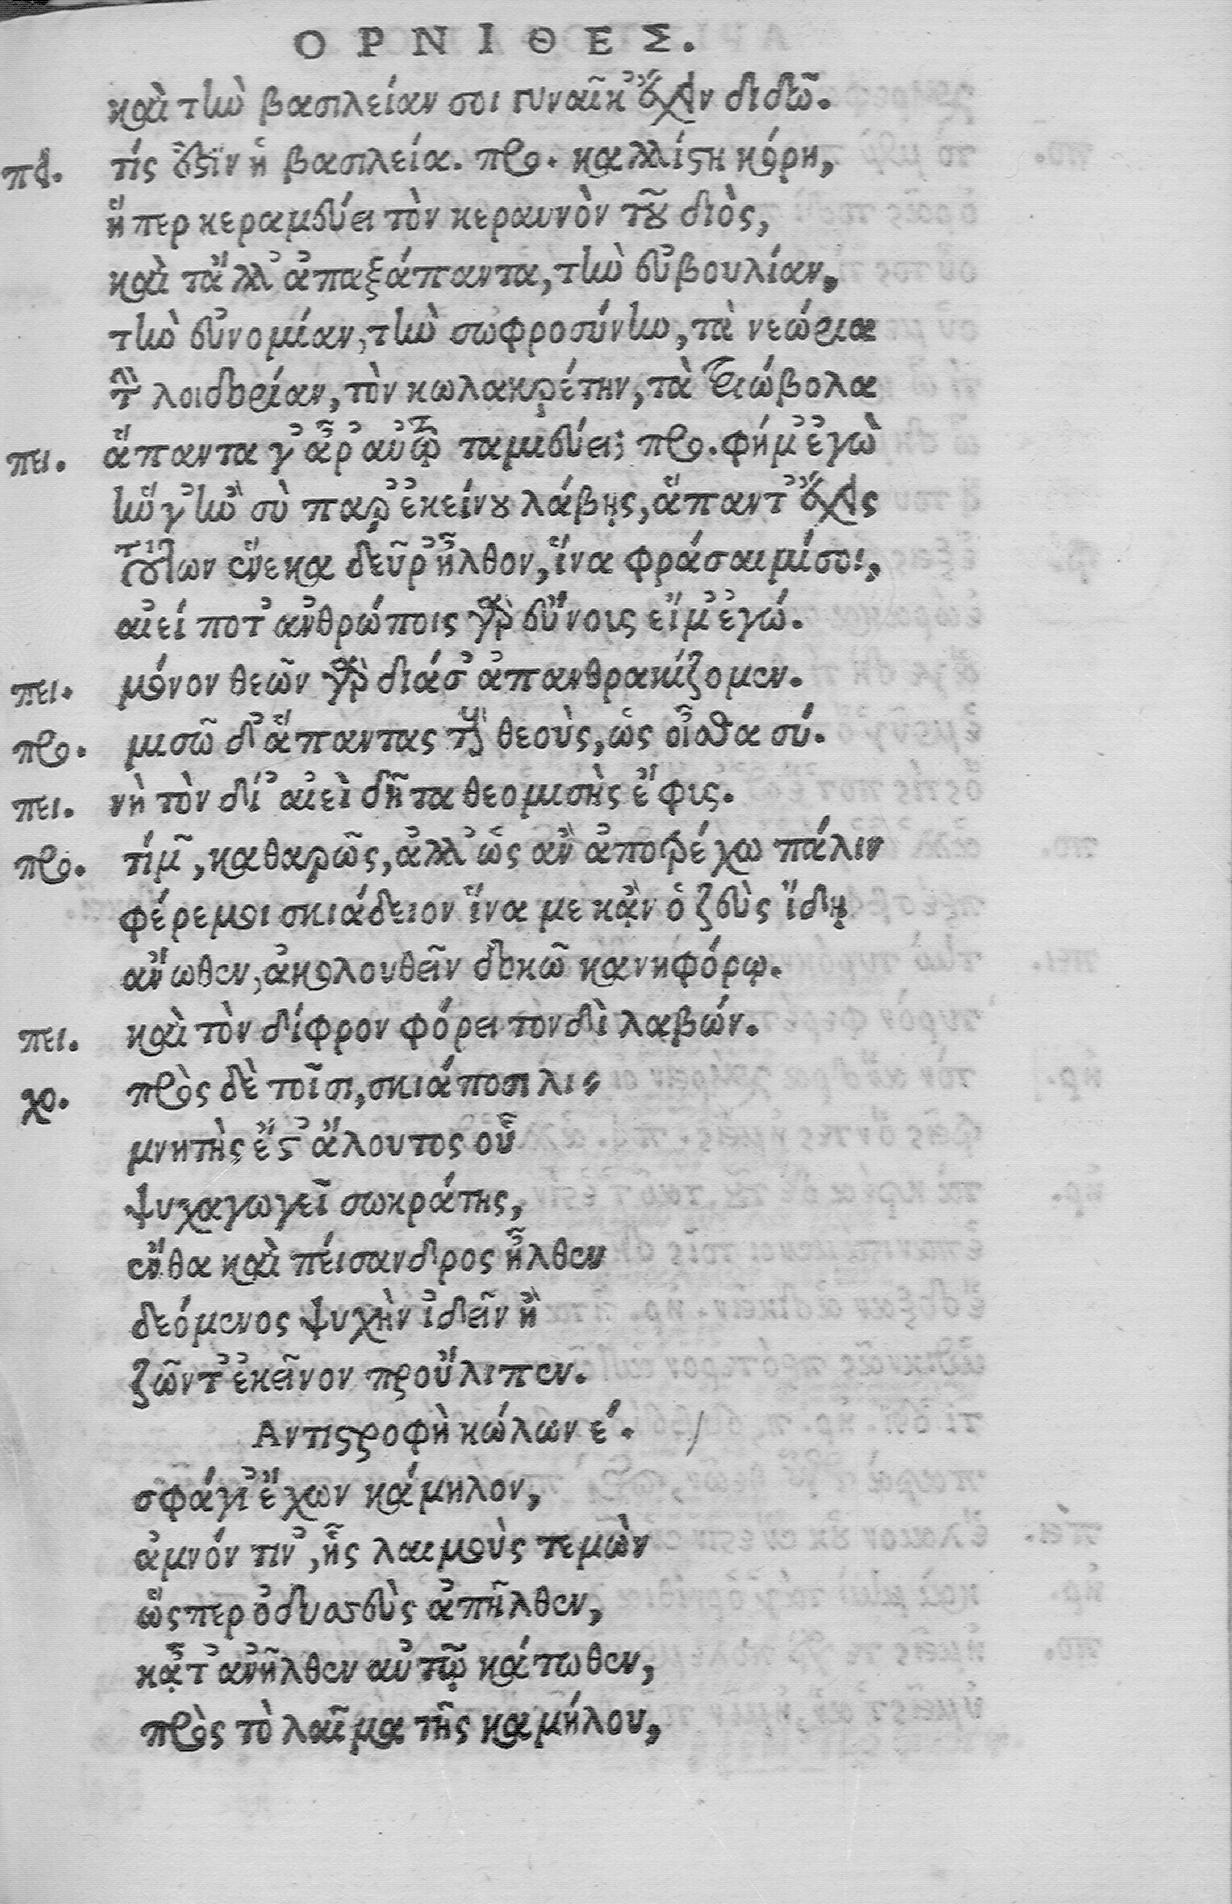 ΟΡΝΙΘΕΣ.
καὶ τὴν βασιλείαν σοι γυναῖκ' ἔχειν διδῶ.
πει. τίς ἐστιν ἡ βασιλεία. προ. καλλίστη κόρη,
ἥπερ κεραμεύει τὸν κεραυνὸν τοῦ διὸς,
καὶ τἄλλ' ἁπαξάπαντα, τὴν εὐβουλίαν,
τὴν εὐνομίαν, τὴν σωφροσύνην, τὰ νεώρια
τὴν λοιδορίαν, τὸν κωλακρέτην, τὰ τριώβολα
πει. ἅπαντα γ' ἆρ' αὐτῷ ταμιεύει; προ. φήμ' ἐγὼ
ἥν γ' ἢν σὺ παρ' ἐκείνου λάβῃς, ἅπαντ' ἔχεις
τούτων ἕνεκα δεῦρ' ἦλθον, ἵνα φράσαιμί σοι,
αἰεί ποτ' ἀνθρώποις γὰρ εὔνους εἴμ' ἐγώ.
πει. μόνον θεῶν γὰρ διάς' ἀπανθρακίζομεν.
προ. μισῶ δ' ἅπαντας τοὺς θεοὺς, ὡς οἶσθα σύ.
πει. νὴ τὸν δί' αἰεὶ δῆτα θεομισὴς ἔφυς.
προ. τίμων, καθαρῶς, ἀλλ' ὡς ἂν ἀποτρέχω πάλιν
φέρε μοι σκιάδειον ἵνα με κᾂν ὁ ζεὺς ἴδῃ
ἄνωθεν, ἀκολουθεῖν δοκῶ κανηφόρῳ.
πει. καὶ τὸν δίφρον φόρει τονδὶ λαβών.
χο. πρὸς δὲ τοῖσι, σκιάποσι λι=
μνητὴς ἔστ' ἄλουτος οὗ
ψυχαγωγεῖ σωκράτης,
ἔνθα καὶ πείσανδρος ἦλθεν
δεόμενος ψυχὴν ἰδεῖν ἣ
ζῶντ' ἐκεῖνον προὔλιπεν.
Αντιστροφὴ κώλων ε΄.
σφάγι' ἔχων κάμηλον,
ἀμνόν τιν', ἧς λαιμοὺς τεμὼν
ὥσπερ ὀδυσσεὺς ἀπῆλθεν,
κᾆτ' ἀνῆλθεν αὐτῷ κάτωθεν,
πρὸς τὸ λαῖμα τῆς καμήλου,